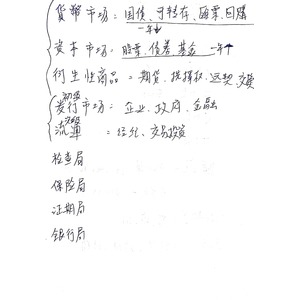 货币市场：国债、可转存、商票、回购
一年↓
资本市场：股票、债券、基金 一年↑
衍生性商品：期货、选择权、远契、交换
初级
发行市场：企业、政府、金融
次级
流通 ：经纪、交易投资
检查局
保险局
证期局
银行局